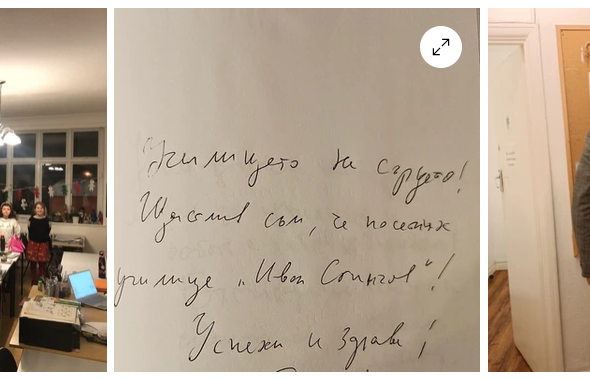 Училището на сърцето!
Щастлив съм, че посетих
училище „Иван
Успехи и здраве!